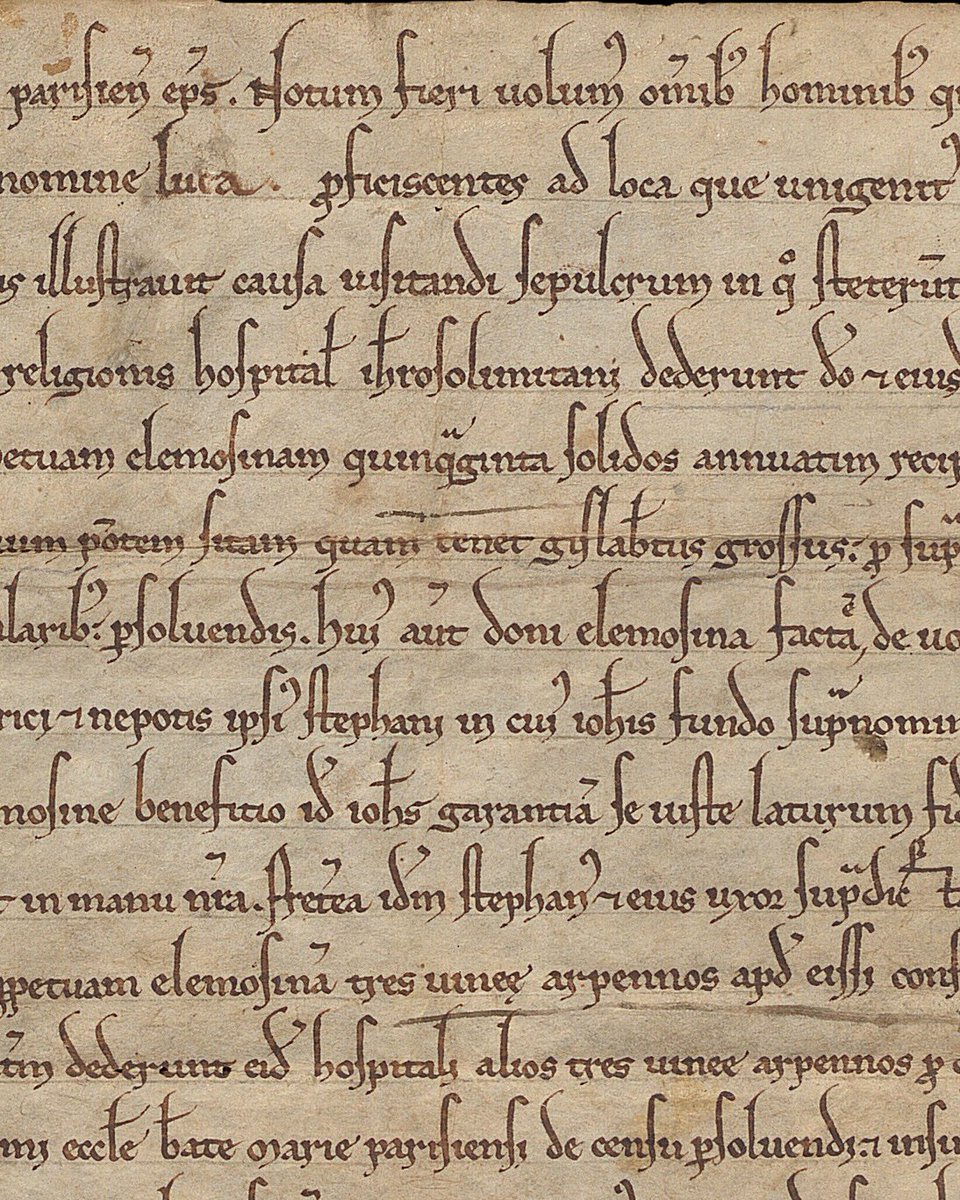 parisien̄ ep̄s. Notum fieri uolum᾿ om̄ib᾿ hominib᾿
nomine luca. ꝓficiscentes ad loca que unigenit᾿
illustrauit causa uisitandi sepulcrum in qͦ steterūt
religionis hospital̄ ih̄rosolimitani dederunt dō ⁊ eius
elemosinam quinqᵃginta solidos annuatim
pōtem sitam quam tenet gislab̄tus grossus: ꝓ
ꝑsoluendis. hui᾿ aūt doni elemosina facta, de
⁊ nepotis ipsi᾿ stephani in cui᾿ ioh̄is fundo
benefitio id̄ ioh̄s garantiā se iuste laturum
in manu nr̄a. Pret̄ea id̄m stephan᾿ ⁊ eius uxor supᵃdic̄
ꝑpetuam elemosinā tres uineę arpennos apd̄ eissi
dederunt eid̄ hospitali alios tres uinee arpennos ꝓ
eccl̄e b̄ate Marie parisiensi de censu ꝑsoluendi: ⁊